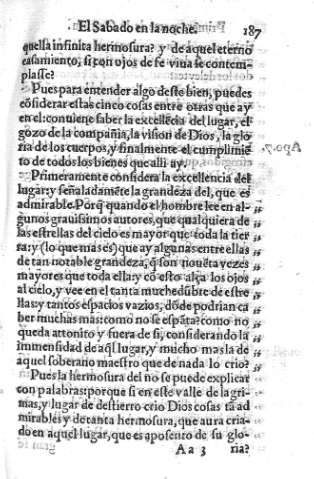 El Sabado en la noche. 187
quella infinita hermosura? y de aquel eterno
casamiento, si con ojos de fe viua se contem-
plasse?
Pues para entender algo deste bien, puedes
cõsiderar estas cinco cosas entre otras que ay
en el: conuiene saber la excellẽcia del lugar, el
gozo de la compañia, la vision de Dios, la glo
ria de los cuerpos, y finalmente el cumplimiẽ
to de todos los bienes que alli ay.
Primeramente considera la excellencia del
lugar: y señaladamẽte la grandeza del, que es
admirable. Porq̃ quando el hombre lee en al-
gunos grauissimos autores, que qualquiera de
las estrellas del cielo es mayor que toda la tier
ra: y (lo que mas es) que ay algunas entre ellas
de tan notable grandeza, q̃ son nouẽta vezes
mayores que toda ella: y cõ esto alça los ojos
al cielo, y vee en el tanta muchedũbre de estre
llas: y tantos espacios vazios, dõde podrian ca
ber muchas mas: como no se espãta? como no
queda attonito y fuera de si, considerando la
immensidad de aq̃l lugar, y mucho mas la de
aquel soberano maestro que de nada lo crio?
Pues la hermosura del no se puede explicar
con palabras: porque si en este valle de lagri-
mas, y lugar de destierro crio Dios cosas tã ad
mirables y de tanta hermosura, que aura cria-
do en aquel lugar, que es aposento de su glo-
A a 3 ria?
Apo. 7.